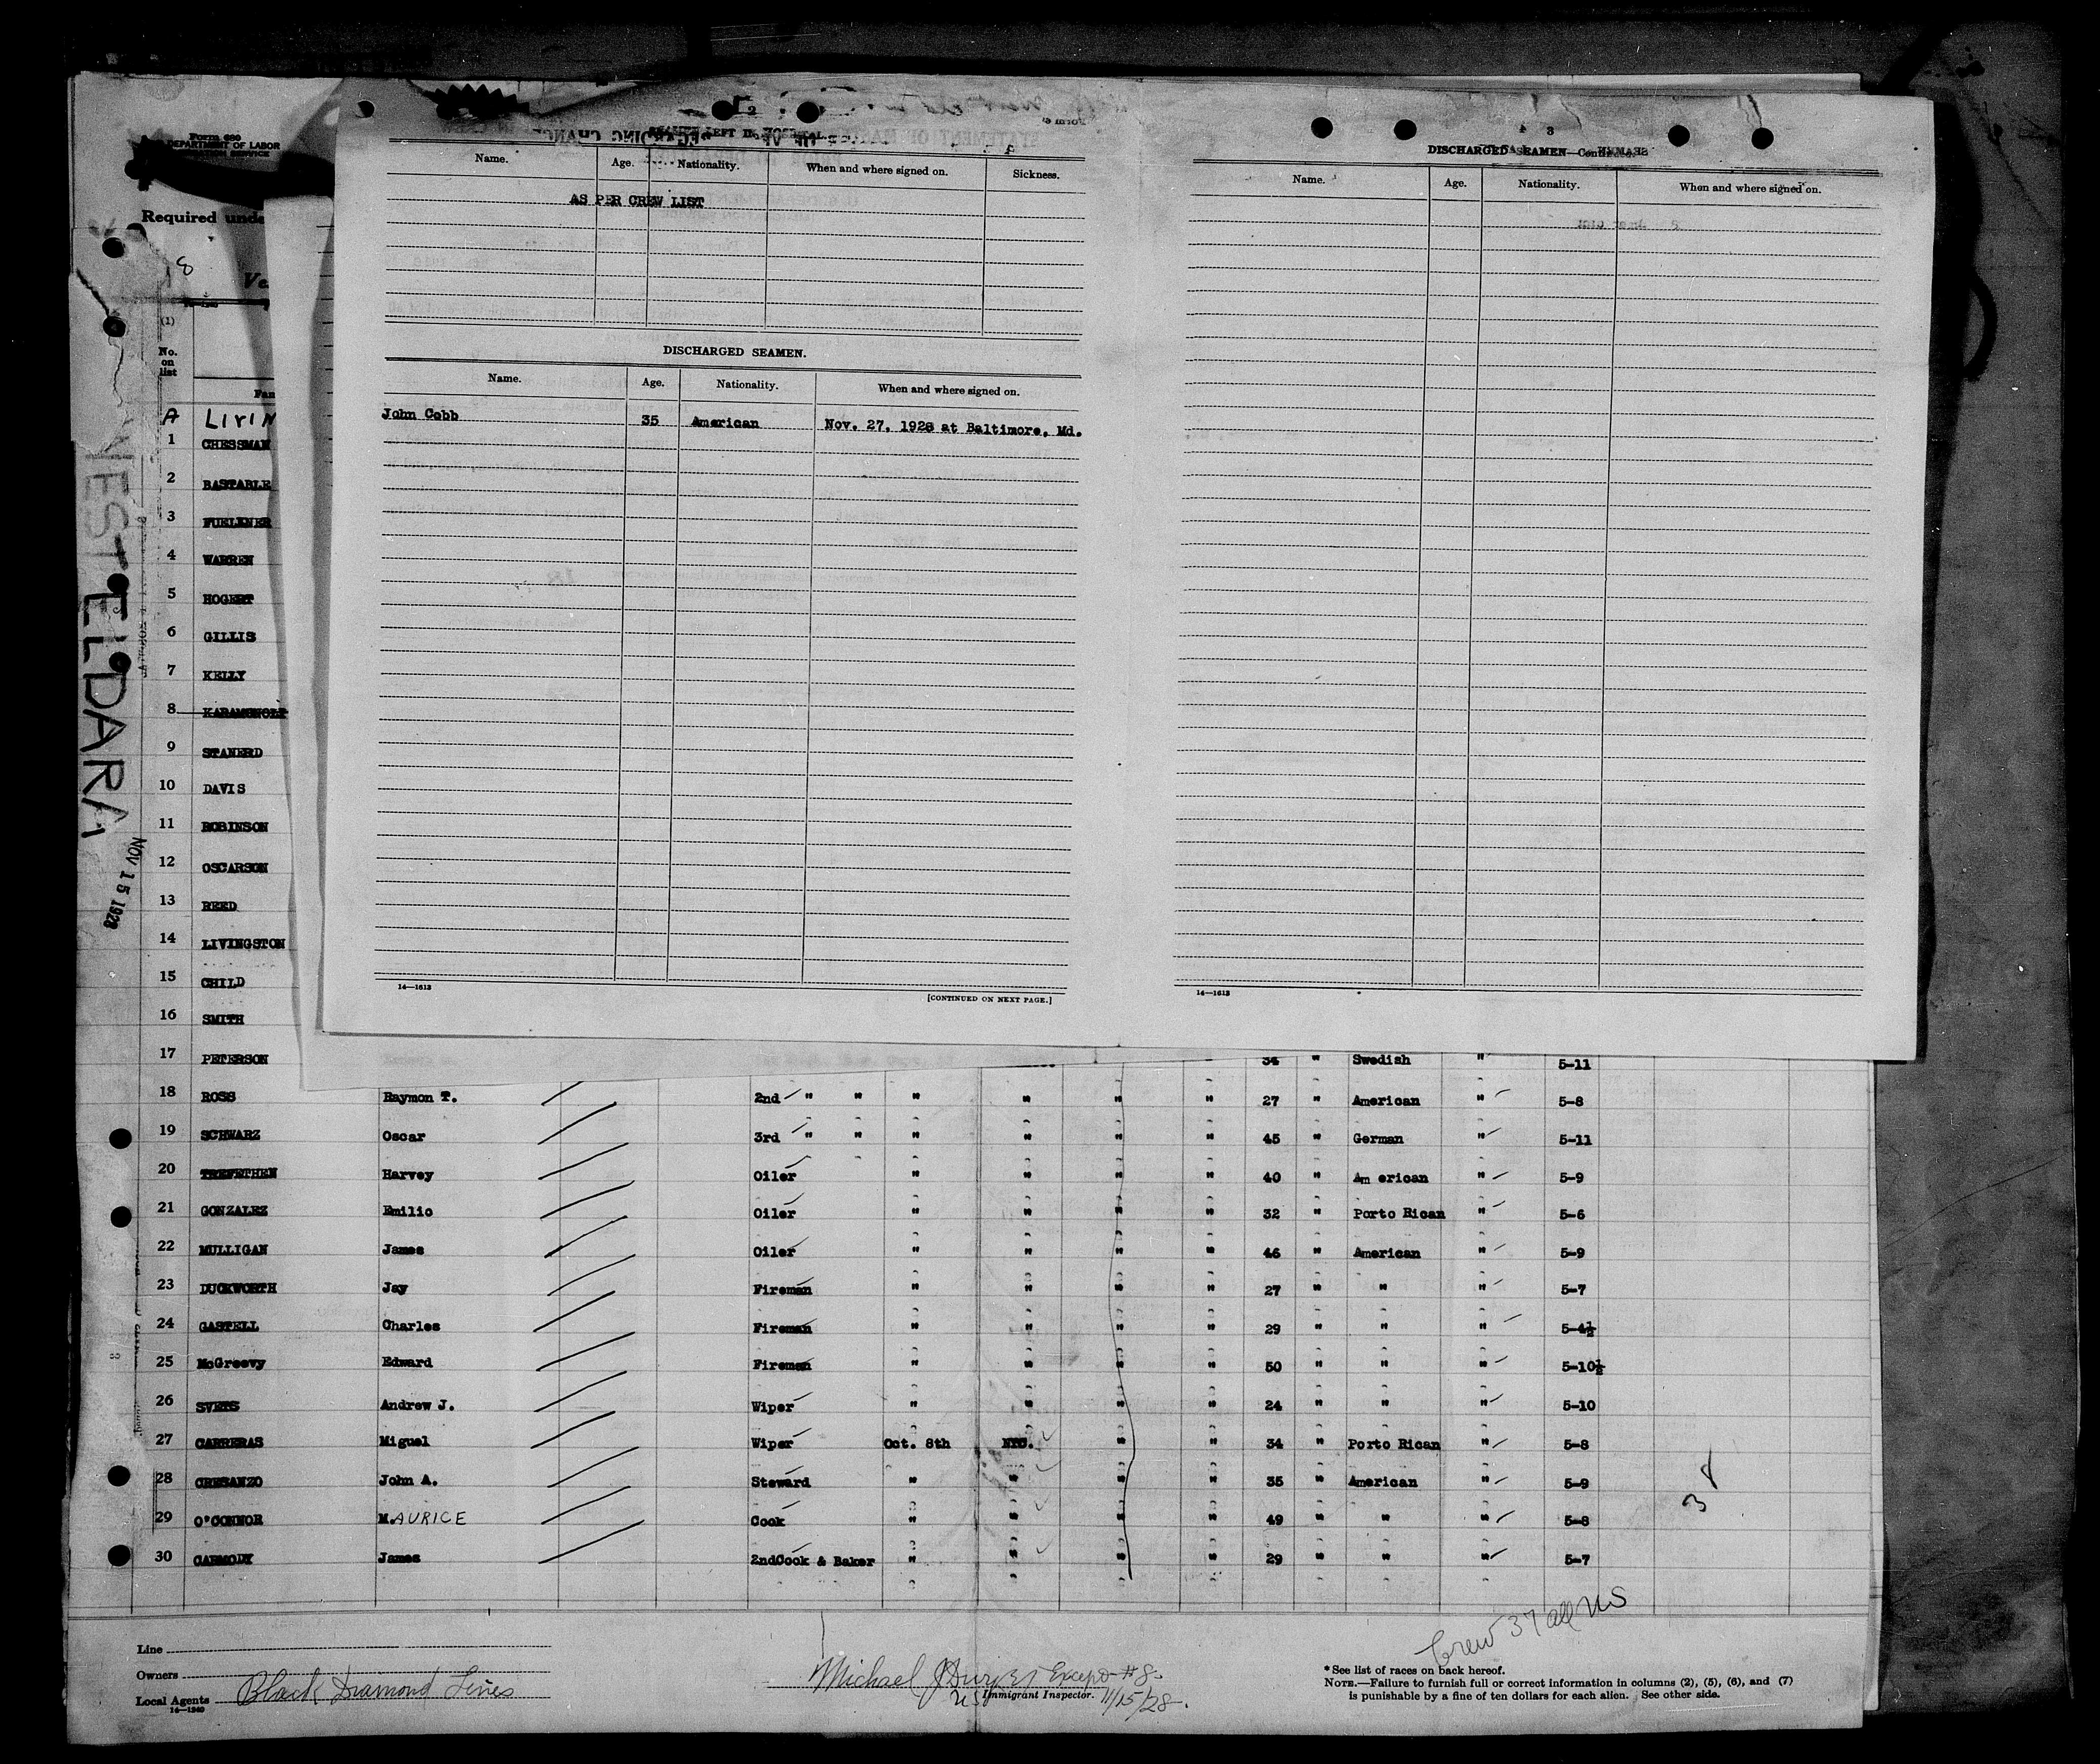 SEAMEN LEFT IN HOSPITAL.
Name. Age. Nationality. When and where signed on. Sickness.
AS PER CREW LIST
DISCHARGED SEAMEN.
Name. Age. Nationality. When and where signed on.
John Cobb 35 American Nov. 27, 1928 at Baltimore, Md.
14—1613
[CONTINUED ON NEXT PAGE.]
3
DISCHARGED SEAMEN—Continued.
Name. Age. Nationality. When and where signed on.
14—1613
Form 680
DEPARTMENT OF LABOR
Required unde
8
Ve
(1)
No.
on
list
Fam
A LIVIN
1 CHESSMAN
2 BASTABLE
3 FUELKNER
4 WARREN
5 HOGERT
6 GILLIS
7 KELLY
8
9 STANERD
10 DAVIS
11 ROBINSON
12 OSCARSON
13 REED
14 LIVINGSTON
15 CHILD
16 SMITH
17 PETERSON 34 " Swedish " 5-11
18 ROSS Raymon T. 2nd " " " " " " 27 " American " 5-8
19 SCHWARZ Oscar 3rd " " " " " " 45 " German " 5-11
20 TREFETHEN Harvey Oiler " " " " 40 " Am erican " 5-9
21 GONZALEZ Emilio Oiler " " " " 32 " Porto Rican " 5-6
22 MULLIGAN James Oiler " " " " 46 " American " 5-9
23 DUCKWORTH Jay Fireman " " " " 27 " " " 5-7
24 GASTELL Charles Fireman " " " " 29 " " " 5-4½
25 McGreevy Edward Fireman " " " " 50 " " " 5-10½
26 SVETS Andrew J. Wiper " " " " 24 " " " 5-10
27 CARRERAS Miguel Wiper Oct. 8th NYC. " " 34 " Porto Rican " 5-8
28 CRESANZO John A. Steward " " " " 35 " American " 5-9
29 O'CONNOR MAURICE Cook " " " " 49 " " " 5-8
30 CARMODY James 2ndCook & Baker " " " " 29 " " " 5-7
WEST ELDARA
NOV 15 1928
Crew 37 all US
Line
Owners
Local Agents Black Diamond Lines
14—1240
Michael Except #8.
Immigrant Inspector. 11/15/28.
*See list of races on back hereof.
NOTE.—Failure to furnish full or correct information in columns (2), (5), (6), and (7)
is punishable by a fine of ten dollars for each alien. See other side.